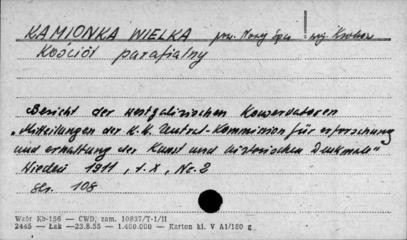 KAMIONKA WIELKA pow. Nowy Sącz woj. Kraków
Kościół parafialny
Bericht der westgalizischen Konservatoren
„Mitteilungen der K.K. Zentral-Kommission für erforschung
und erhaltung der Kunst und historischen Denkmale"
Wiedeń 1911, t.X, Nr. 2
str. 108
Wzór Kb-156 — CWD, zam. 10837/T-1/II
2445 — Łak —23.8.55 — 1.400.000 — Karton kl. V A1/180 g